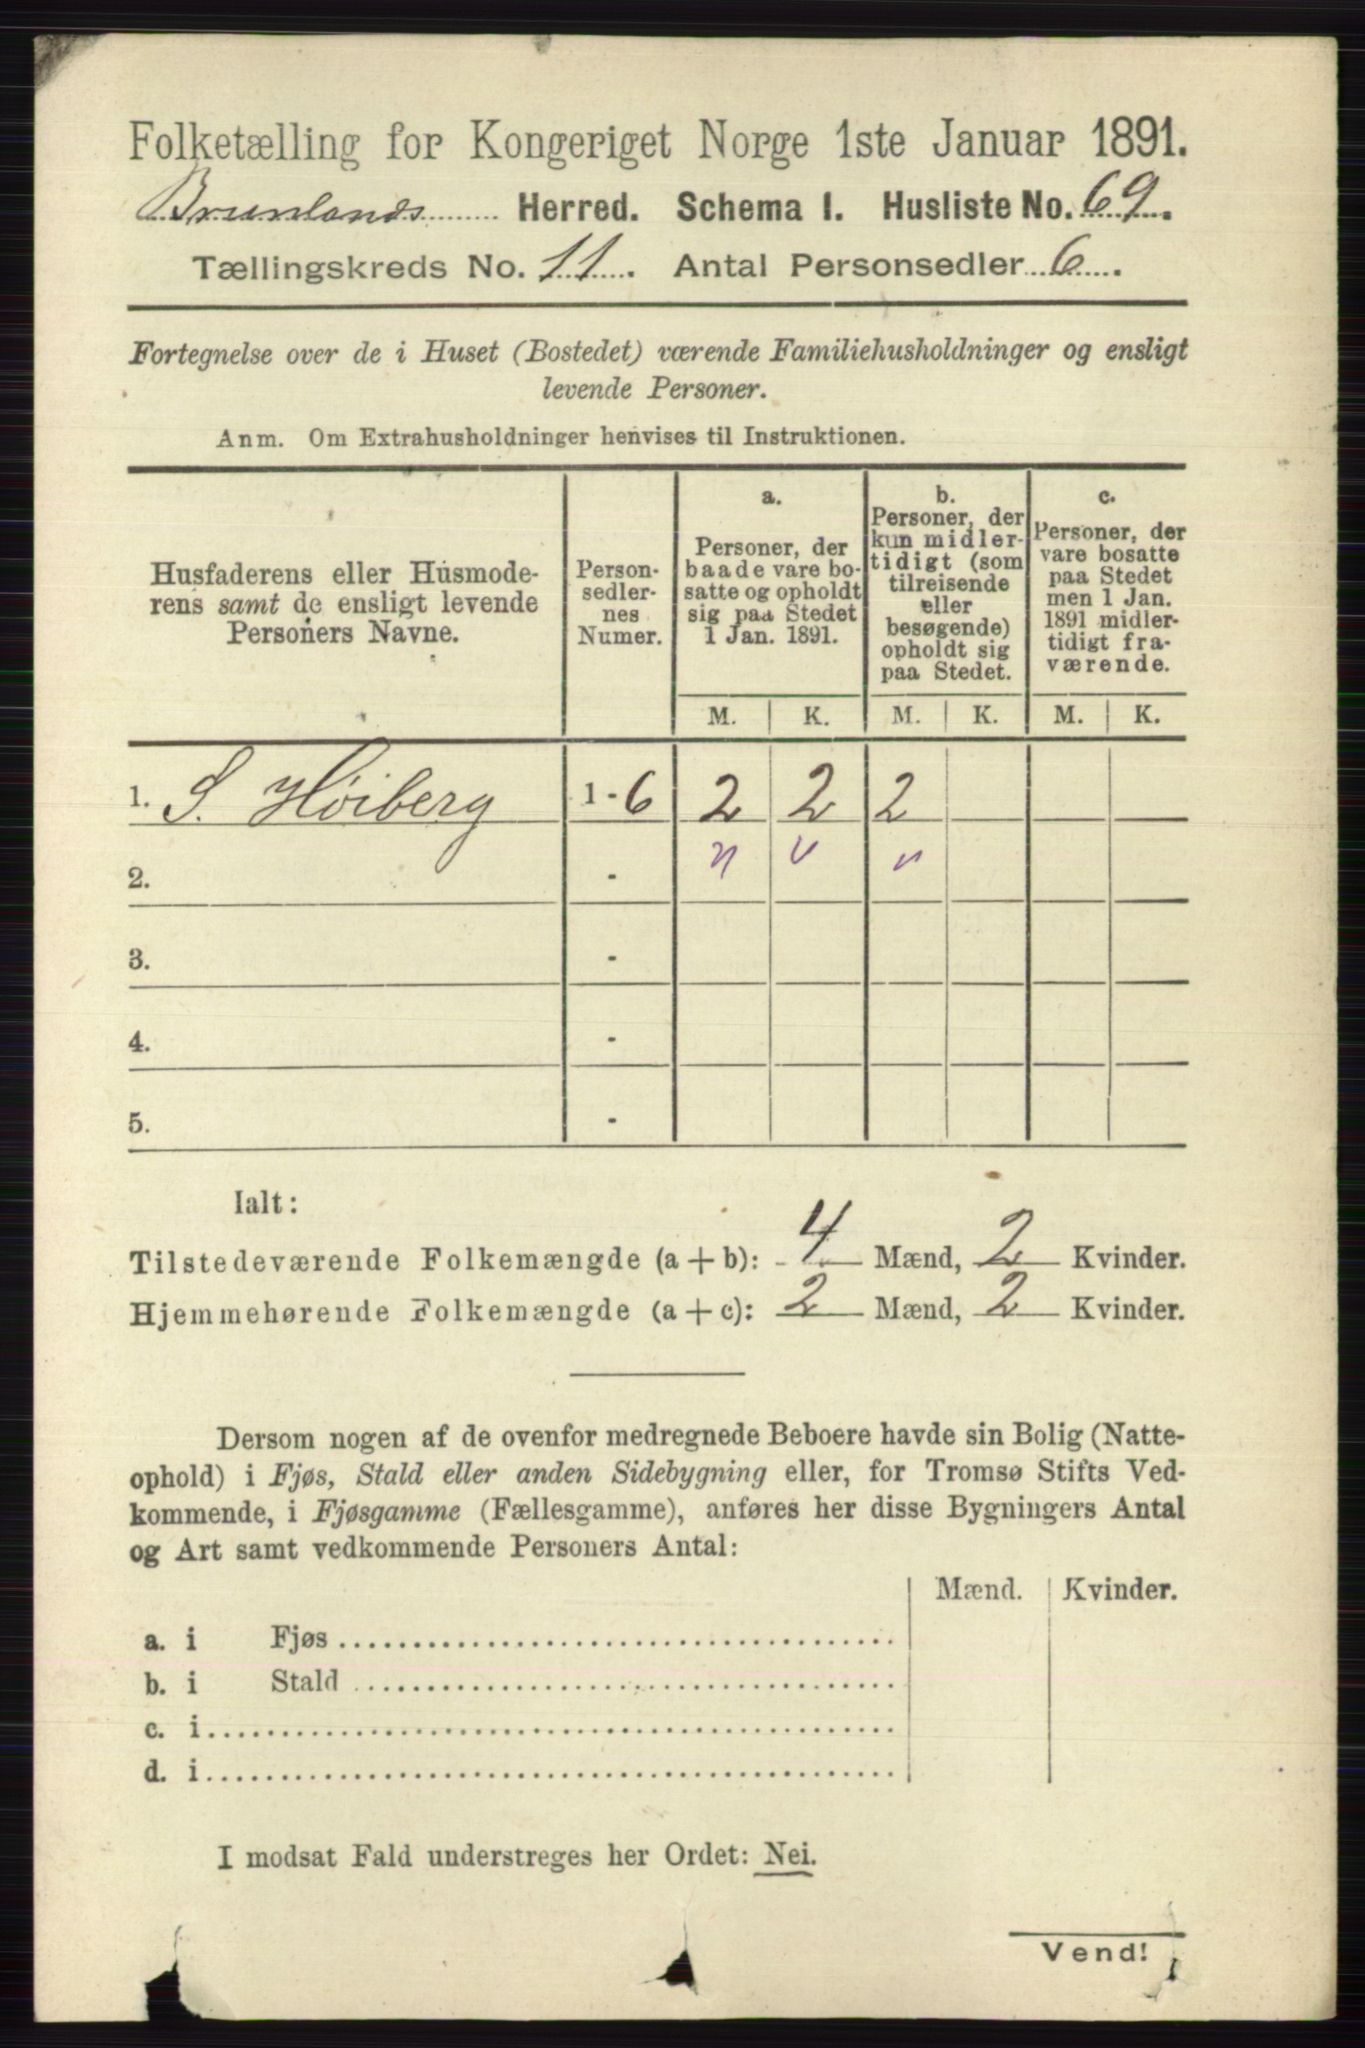 Folketælling for Kongeriget Norge 1ste Januar 1891.
Brunlands Herred. Schema I. Husliste No. 69.
Tællingskreds No. 11. Antal Personsedler 6.
Fortegnelse over de i Huset (Bostedet) værende Familiehusholdninger og ensligt
levende Personer.
Anm. Om Extrahusholdninger henvises til Instruktionen.
Husfaderens eller Husmode-
rens samt de ensligt levende
Personers Navne.
Person-
sedler-
nes
Numer.
a.
Personer, der
baade vare bo-
satte og opholdt
sig paa Stedet
1 Jan. 1891.
b.
Personer, der
kun midler-
tidigt (som
tilreisende
eller
besøgende)
opholdt sig
paa Stedet.
c.
Personer, der
vare bosatte
paa Stedet
men 1 Jan.
1891 midler-
tidigt fra-
værende.
M. K. M. K. M. K.
1. S. Høiberg 1-6 2 2 2
2. -
3. -
4. -
5. -
Ialt:
Tilstedeværende Folkemængde (a + b): 4 Mænd, 2 Kvinder.
Hjemmehørende Folkemængde (a + c): 2 Mænd, 2 Kvinder.
Dersom nogen af de ovenfor medregnede Beboere havde sin Bolig (Natte-
ophold) i Fjøs, Stald eller anden Sidebygning eller, for Tromsø Stifts Ved-
kommende, i Fjøsgamme (Fællesgamme), anføres her disse Bygningers Antal
og Art samt vedkommende Personers Antal:
Mænd. Kvinder.
a. i Fjøs
b. i Stald
c. i
d. i
I modsat Fald understreges her Ordet: Nei.
Vend!